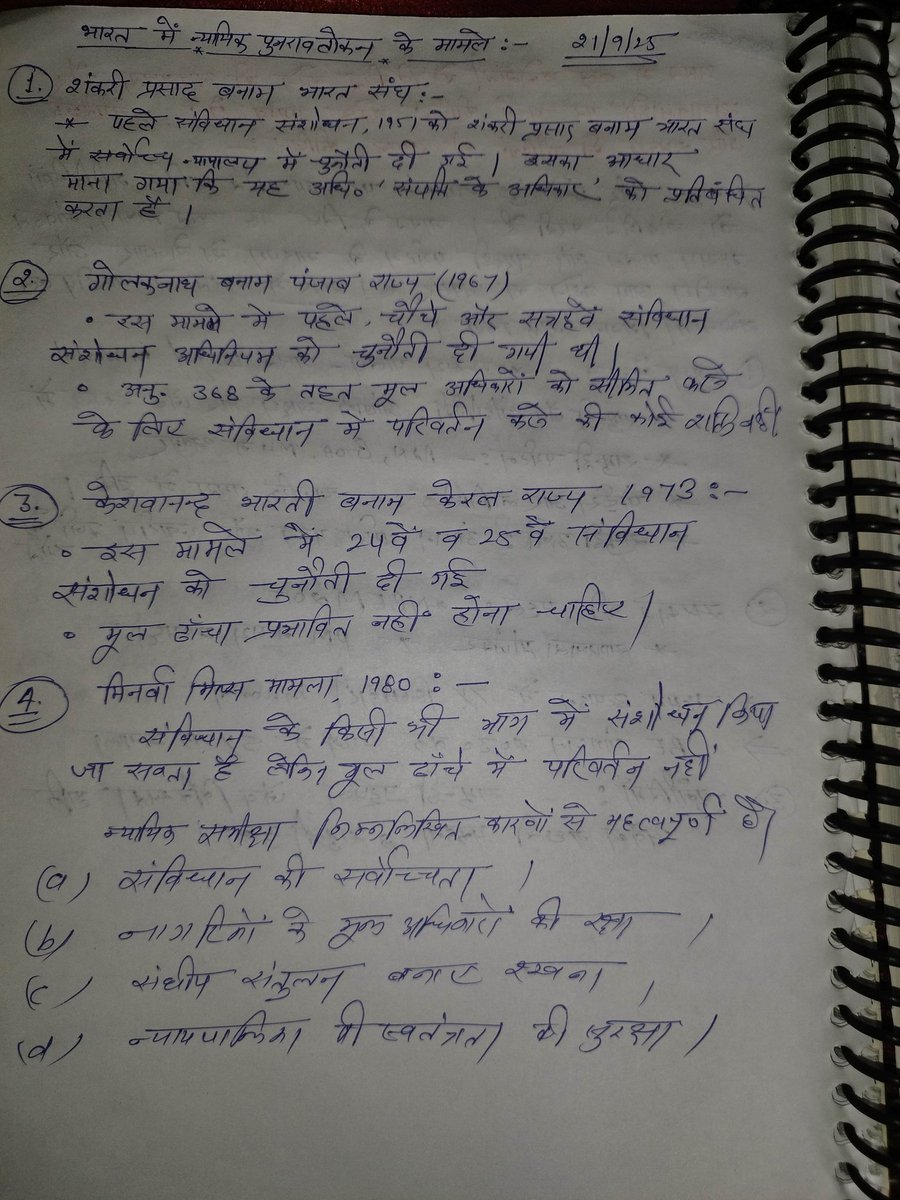 भारत में न्यायिक पुनरावलोकन के मामले :- 21/9/25
1. शंकरी प्रसाद बनाम भारत संघ :-
* पहले संविधान संशोधन, 1951 को शंकरी प्रसाद बनाम भारत संघ
में सर्वोच्च न्यायालय में चुनौती दी गई। इसका आधार
माना गया कि यह अधि० 'संपत्ति के अधिकार' को प्रतिबंधित
करता है।
2. गोलकनाथ बनाम पंजाब राज्य (1967)
• इस मामले में पहले, चौथे और सत्रहवें संविधान
संशोधन अधिनियम को चुनौती दी गयी थी।
• अनु. 368 के तहत मूल अधिकारों को सीमित करने
के लिए संविधान में परिवर्तन करने की कोई शक्ति नहीं
3. केशवानन्द भारती बनाम केरल राज्य 1973 :-
• इस मामले में 24वें व 25वें संविधान
संशोधन को चुनौती दी गई
• मूल ढाँचा प्रभावित नहीं होना चाहिए।
4. मिनर्वा मिल्स मामला, 1980 :-
संविधान के किसी भी भाग में संशोधन किया
जा सकता है लेकिन मूल ढाँचे में परिवर्तन नहीं
न्यायिक समीक्षा निम्नलिखित कारणों से महत्वपूर्ण है।
(a) संविधान की सर्वोच्चता।
(b) नागरिकों के मूल अधिकारों की रक्षा।
(c) संघीय संतुलन बनाए रखना।
(d) न्यायपालिका की स्वतंत्रता की सुरक्षा।